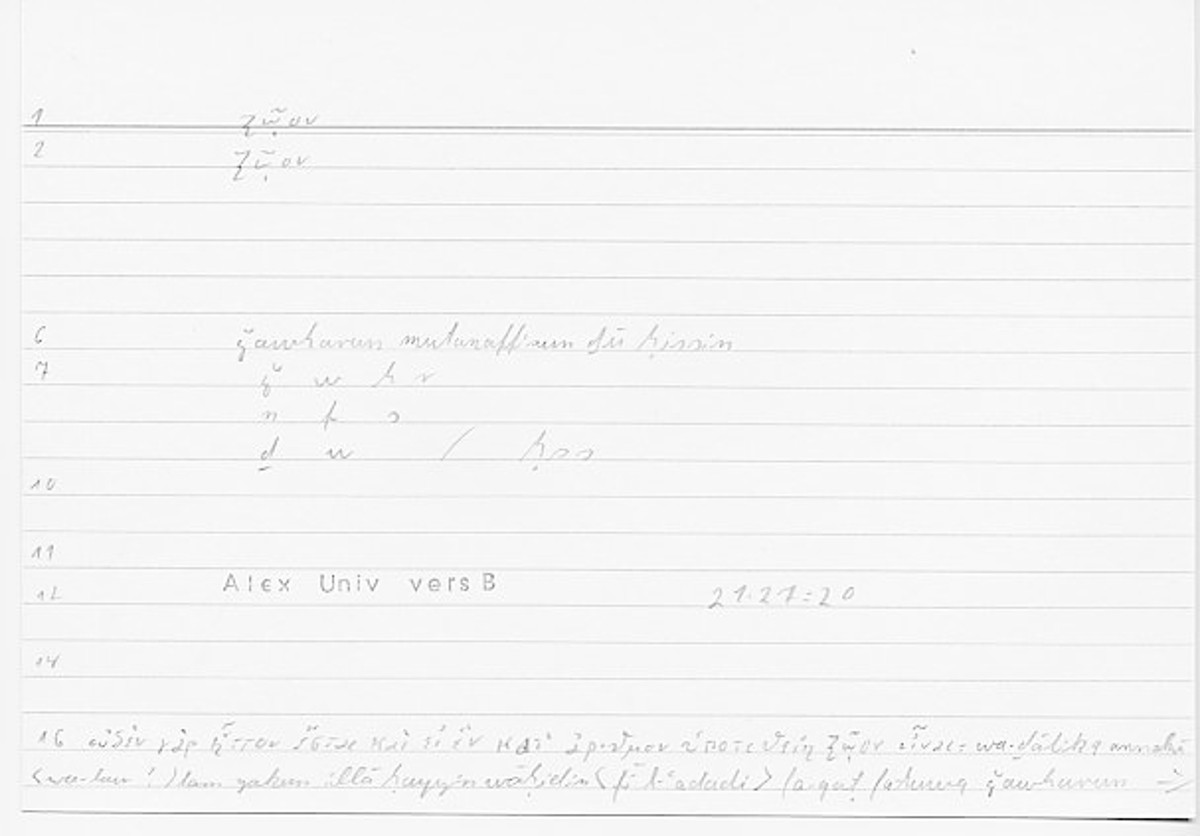 1 ζῷον
2 ζῷον
6 ǧawharun mutanaffisun ḏū ḥissin
7 ǧ w h r
n f s
ḏ w / ḥss
10
11
12 Alex Univ vers B 21.27=20
14
16 οὐδὲν γὰρ ἧττον ἔσται καὶ εἰ ἓν κατ' ἀριθμὸν ὑποτεθείη ζῷον εἶναι = wa-ḏālika annahū
<wa-lau !> lam yakun illā ḥayyin wāḥidin <fī l-ʿadadi> faqaṭ ǧawharun →